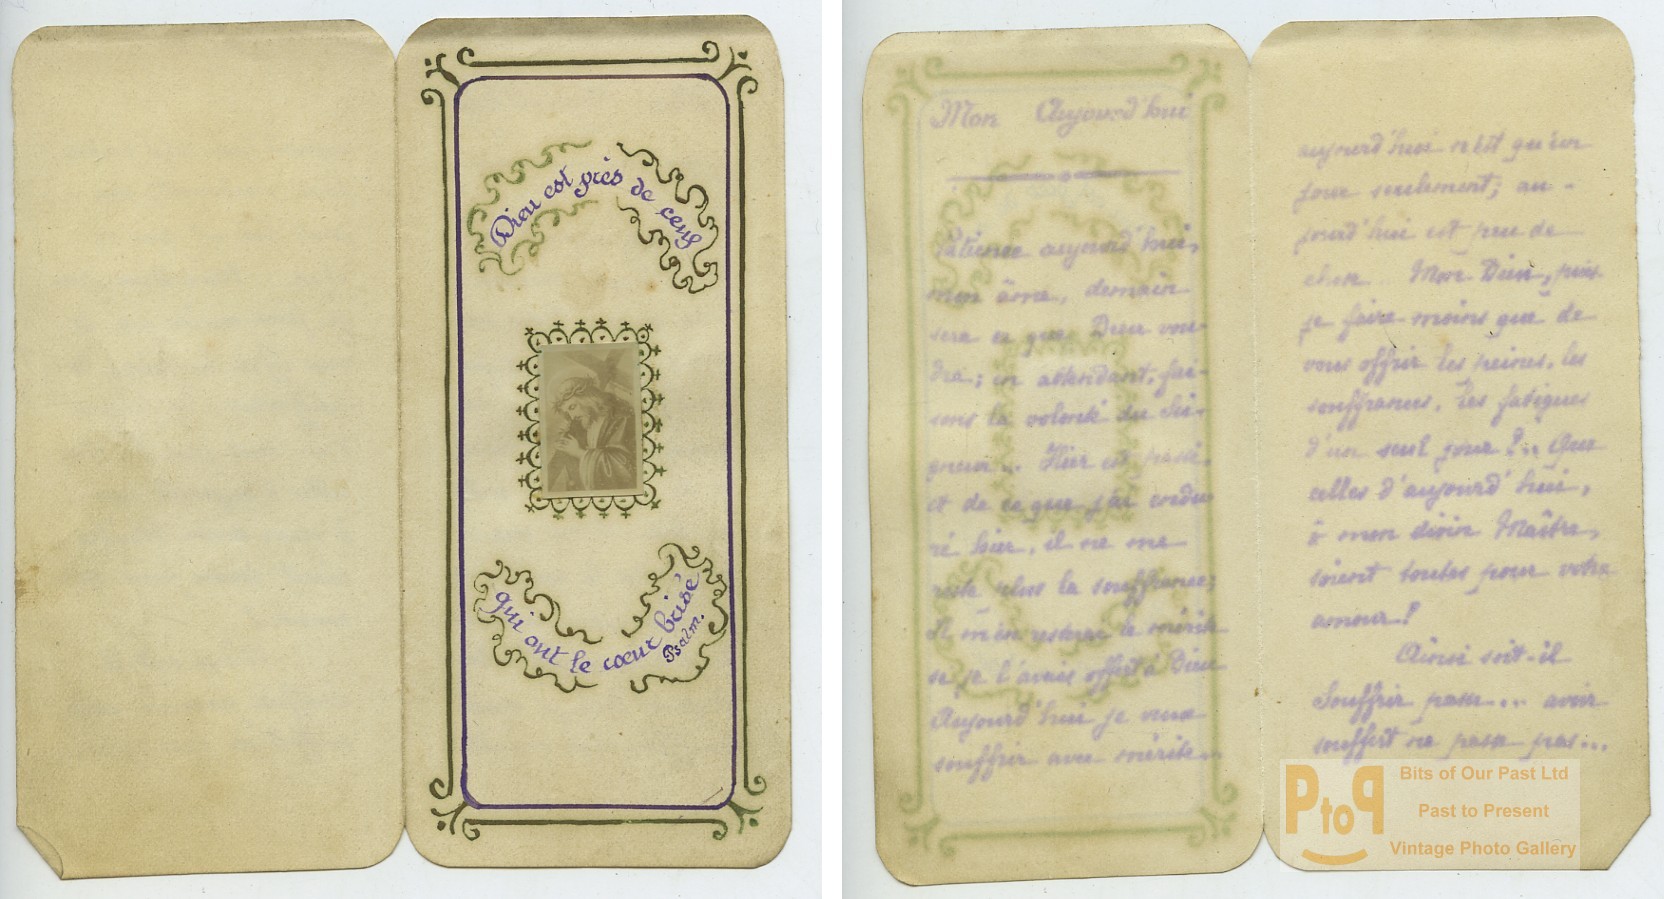 Dieu est près de ceux
qui ont le cœur brisé
Psalm.
Mon Aujourd'hui
Patience aujourd'hui,
mon âme, demain
sera ce que Dieu vou-
dra; en attendant, fai-
sons la volonté du Sei-
gneur... Hier est passé,
et de ce que j'ai endu-
ré hier, il ne me
reste plus la souffrance;
il m'en restera le mérite
se je l'avais offert à Dieu
Aujourd'hui je veux
souffrir avec mérite...
aujourd'hui n'est qu'un
jour seulement; au-
jourd'hui est peu de
chose Mon Dieu, puis
je faire moins que de
vous offrir les peines, les
souffrances, les fatigues
d'un seul jour?... Que
celles d'aujourd'hui,
ô mon divin Maître,
soient toutes pour votre
amour!
Ainsi soit-il
Souffrir passe... avoir
souffert ne passe pas...
PtoP
Bits of Our Past Ltd
Past to Present
Vintage Photo Gallery